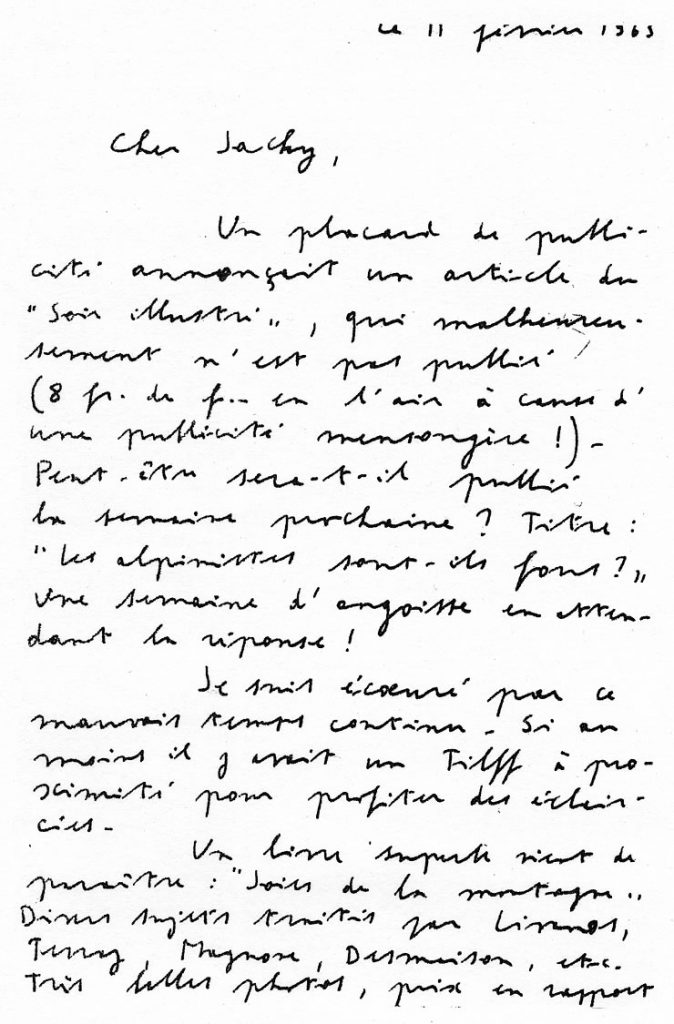 le 11 février 1963
Cher Jacky,
Un placard de publi-
cité annonçait un article du
"Soir illustré", qui malheureu-
sement n'est pas publié
(8 fr. de f... en l'air à cause d'
une publicité mensongère !) -
Peut-être sera-t-il publié
la semaine prochaine ? Titre :
"Les alpinistes sont-ils fous ?"
Une semaine d'angoisse en atten-
dant la réponse !
Je suis écœuré par ce
mauvais temps continu - Si au
moins il y avait un Tilff à pro-
ximité pour profiter des éclair-
cies -
Un livre superbe vient de
paraître : "Joies de la montagne"
Divers sujets traités par Livanos,
Terray, Magnone, Desmaison, etc.
Très belles photos, prix en rapport